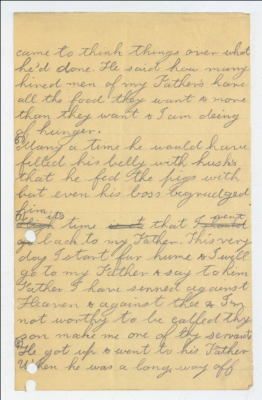 came to think things over what
he'd done. He said how many
hired men of my Father's have
all the food they want & more
than they want & I am dieing
of hunger.
Many a time he would have
filled his belly with husks
that he fed the pigs with
but even his boss begrudged
him its
time that I went
back to my Father. This very
day I start for home & I will
go to my Father & say to him
Father I have senned against
Heaven & against thee & I'm
not worthy to be called thy
son make me one of thy servants
He got up & went to his Father
When he was a long way off